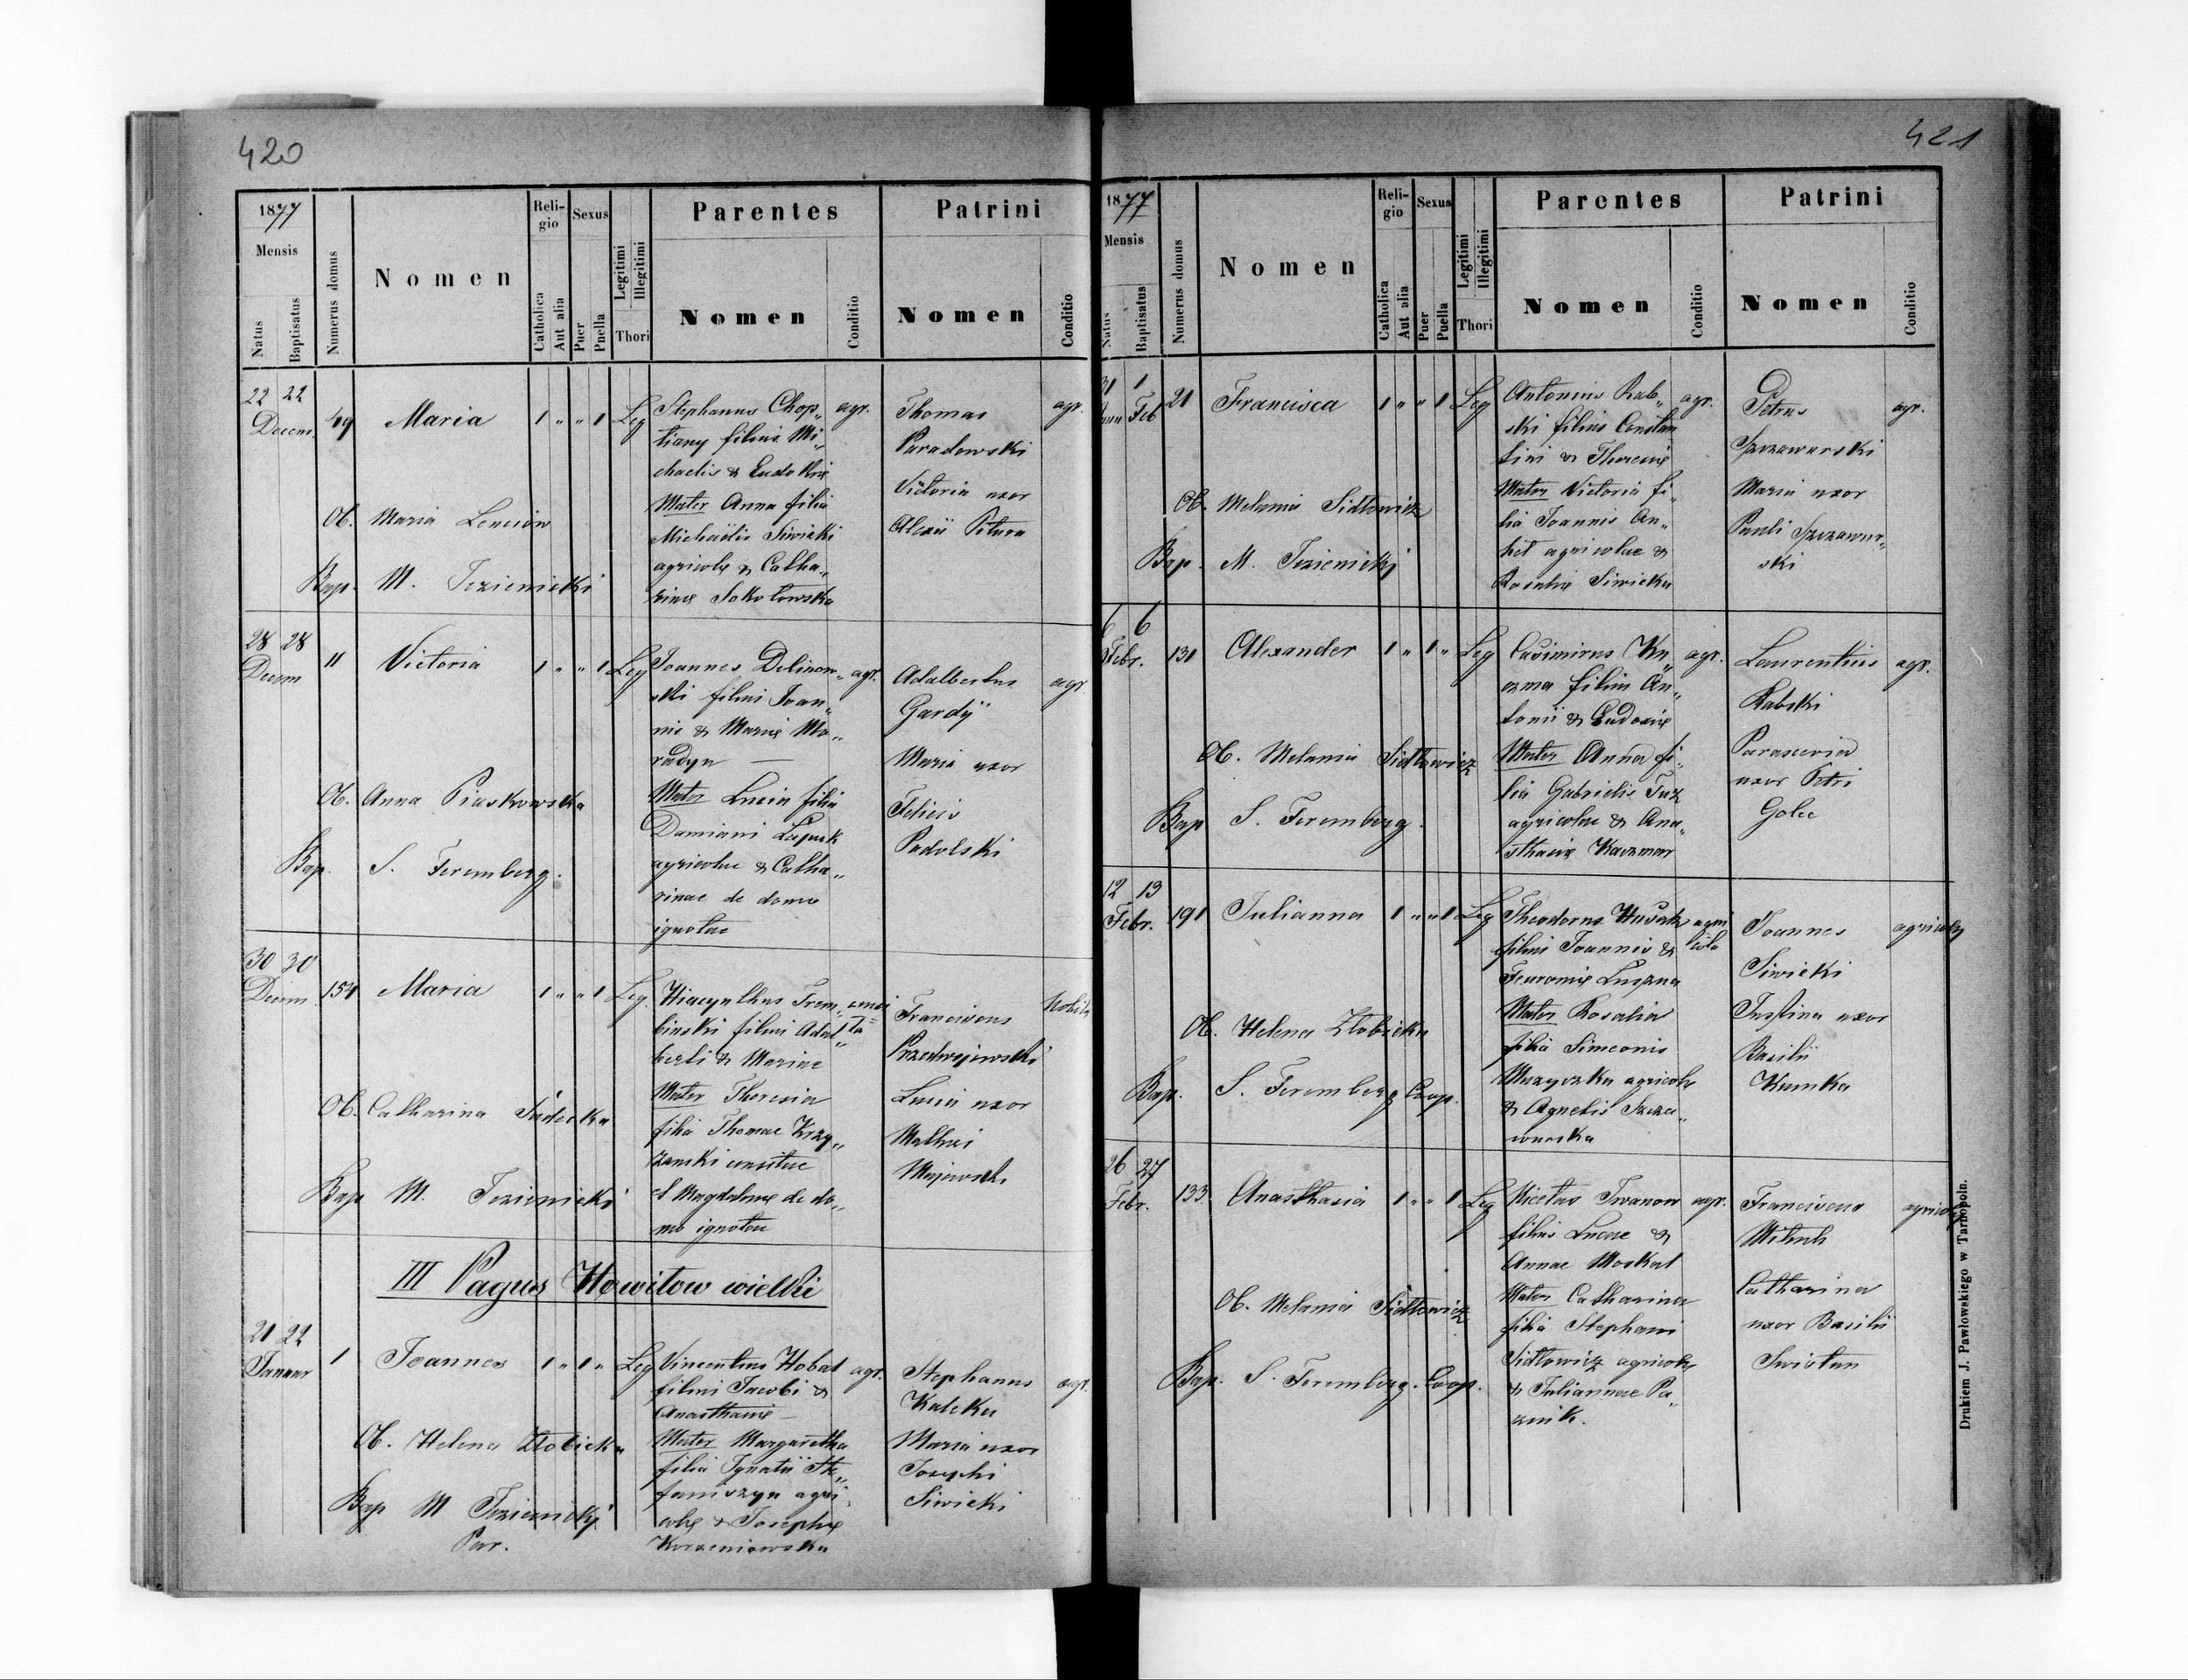 420
1877
Mensis
Natus
Baptisatus
Numerus domus
Nomen
Religio
Catholica
Aut alia
Sexus
Puer
Puella
Legitimi
Illegitimi
Thori
Parentes
Nomen
Conditio
Patrini
Nomen
Conditio
22 22
Decem.
49 Maria 1 " " 1 Leg
Ob. Maria Lenciów
Bap. M. Jezienicki
Stephanus Chop„ agr.
tiany filius Mi„
chaelis & Eudokiæ
Mater Anna filia
Michaëlis Siwicki
agricolæ & Catha„
rinæ Sokołowska
Thomas agr.
Paradowski
Victoria uxor
Alexii Pitura
28 28
Decem
11 Victoria 1 " " 1 Leg
Ob. Anna Piaskowska
Bap. S. Feremberg.
Joannes Delinow„ agr.
ski filius Joan„
nis & Mariæ Ma„
radyn —
Mater Lucia filia
Damiani
agricolae & Catha„
rinae de domo
ignotae
Adalbertus agr
Gardÿ
Maria uxor
Felicis
Podolski
30 30
Decem
154 Maria 1 " " 1 Leg.
Ob. Catharina Sadecka
Bap M. Jezienicki
Hiacynthus Trem„
binski filius Adal„
berti & Mariae
Mater Theresia
filia Thomae Krzy„
żanski
& Magdalenæ de do„
mo ignotae
Franciscus Nobilis
Przedwojewski
Lucia uxor
Mathæi
Majewski
III Pagus Howiłow wielki
21 22
Januar
1 Joannes 1 " 1 " Leg
Ob. Helena Złobicka
Bap M Jezienicki
Par.
Vincentius Hobal agr.
filius Jacobi &
Anasthasiæ —
Mater Margaretha
filia Ignatii Ste„
faniszyn agri„
colæ & Josephæ
Korzeniowska
Stephanus agr.
Kaleka
Maria uxor
Josephi
Siwicki
421
1877
Mensis
Natus
Baptisatus
Numerus domus
Nomen
Religio
Catholica
Aut alia
Sexus
Puer
Puella
Legitimi
Illegitimi
Thori
Parentes
Nomen
Conditio
Patrini
Nomen
Conditio
31 1
Feb
21 Francisca 1 " " 1 Leg
Ob. Melania Sidłowicz
Bap. M. Jezienicki
Antonius Rab„ agr.
ski filius Constan
tini & Theresiæ
Mater Victoria fi„
lia Joannis An„
agricolae &
Rosaliæ Siwicka
Petrus agr.
Szczawurski
Maria uxor
Pauli Szczawur„
ski
6 6
Febr.
131 Alexander 1 " 1 " Leg
Ob. Melania Sidłowicz
Bap S. Feremberg.
Casimirus Ku„ agr.
czma filius An„
tonii & Eudoxiæ
Mater Anna fi„
lia Gabrielis
agricolae & Ana„
sthasiæ Kaczmar
Laurentius agr.
Rabski
Parascevia
uxor Petri
Golec
12 13
Febr.
191 Julianna 1 " " 1 Leg
Ob. Helena Złobicka
Bap. S. Feremberg Coop.
Theodorus Husak agri
filius Joannis & cola
Feuroniæ
Mater Rosalia
filia Simeonis
Muzyczka agricolæ
& Agnetis Szcza„
wurska
Joannes agricola
Siwicki
Justina uxor
Basilii
Kumka
26 27
Febr.
133. Anasthasia 1 " " 1 Leg
Ob. Melania Sidłowicz
Bap. S. Feremberg. Coop.
Nicetas Iwanow agr.
filius Lucae &
Annae Moskal
Mater Catharina
filia Stephani
Sidłowicz agricolæ
& Juliannae Pa„
znik.
Franciscus
Catharina
uxor Basilii
Swistun
Drukiem J. Pawłowskiego w Tarnopolu.